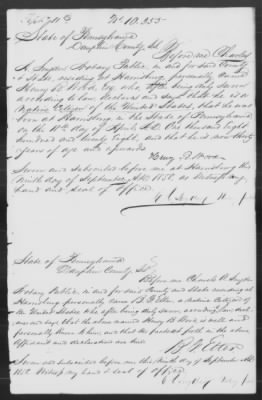 No 10.255
State of Pennsylvania
Dauphin County, Sd. Before me Charles
A. Snyder Notary Public in and for said County
& State, residing at Harrisburg, personally came
Henry B. Wood Esq. who after being duly sworn
according to law, declares and says that he is a
native Citizen of the United States, that he was
born at Harrisburg in the State of Pennsylvania
on the 18th day of April A.D. One thousand eight
hundred and twenty eight, and that he is now thirty
years of age and upwards
Henry B. Wood
Sworn and subscribed before me at Harrisburg this
Ninth day of September A.D. 1858, as witness my
hand and seal of office.
State of Pennsylvania
Dauphin County, Sd
Before me Charles A. Snyder
Notary Public in and for said County and State residing at
Harrisburg personally came B. F. a native Citizen of
the United States who after being duly sworn, according to law, doth
and says that the above named Henry B. Wood is well and
personally known to him, and that the facts set forth in the above
affidavit and declaration are true
B. F.
Sworn and subscribed before me this Ninth day of September A.D.
1858. Witness my hand & seal of office